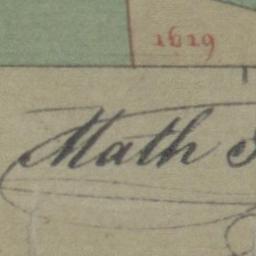 1619
Math